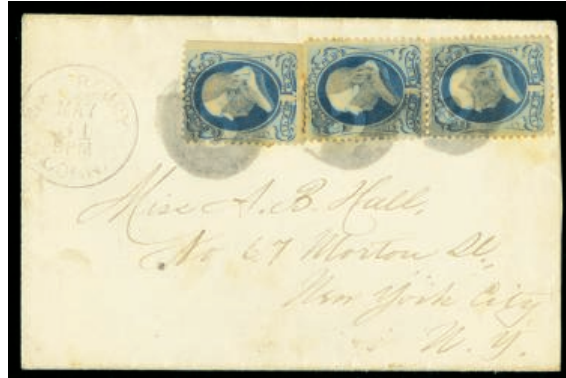 MAY
PM
CONN.
Miss A. B. Hall,
No 67 Morton St,
New York City
N. Y.